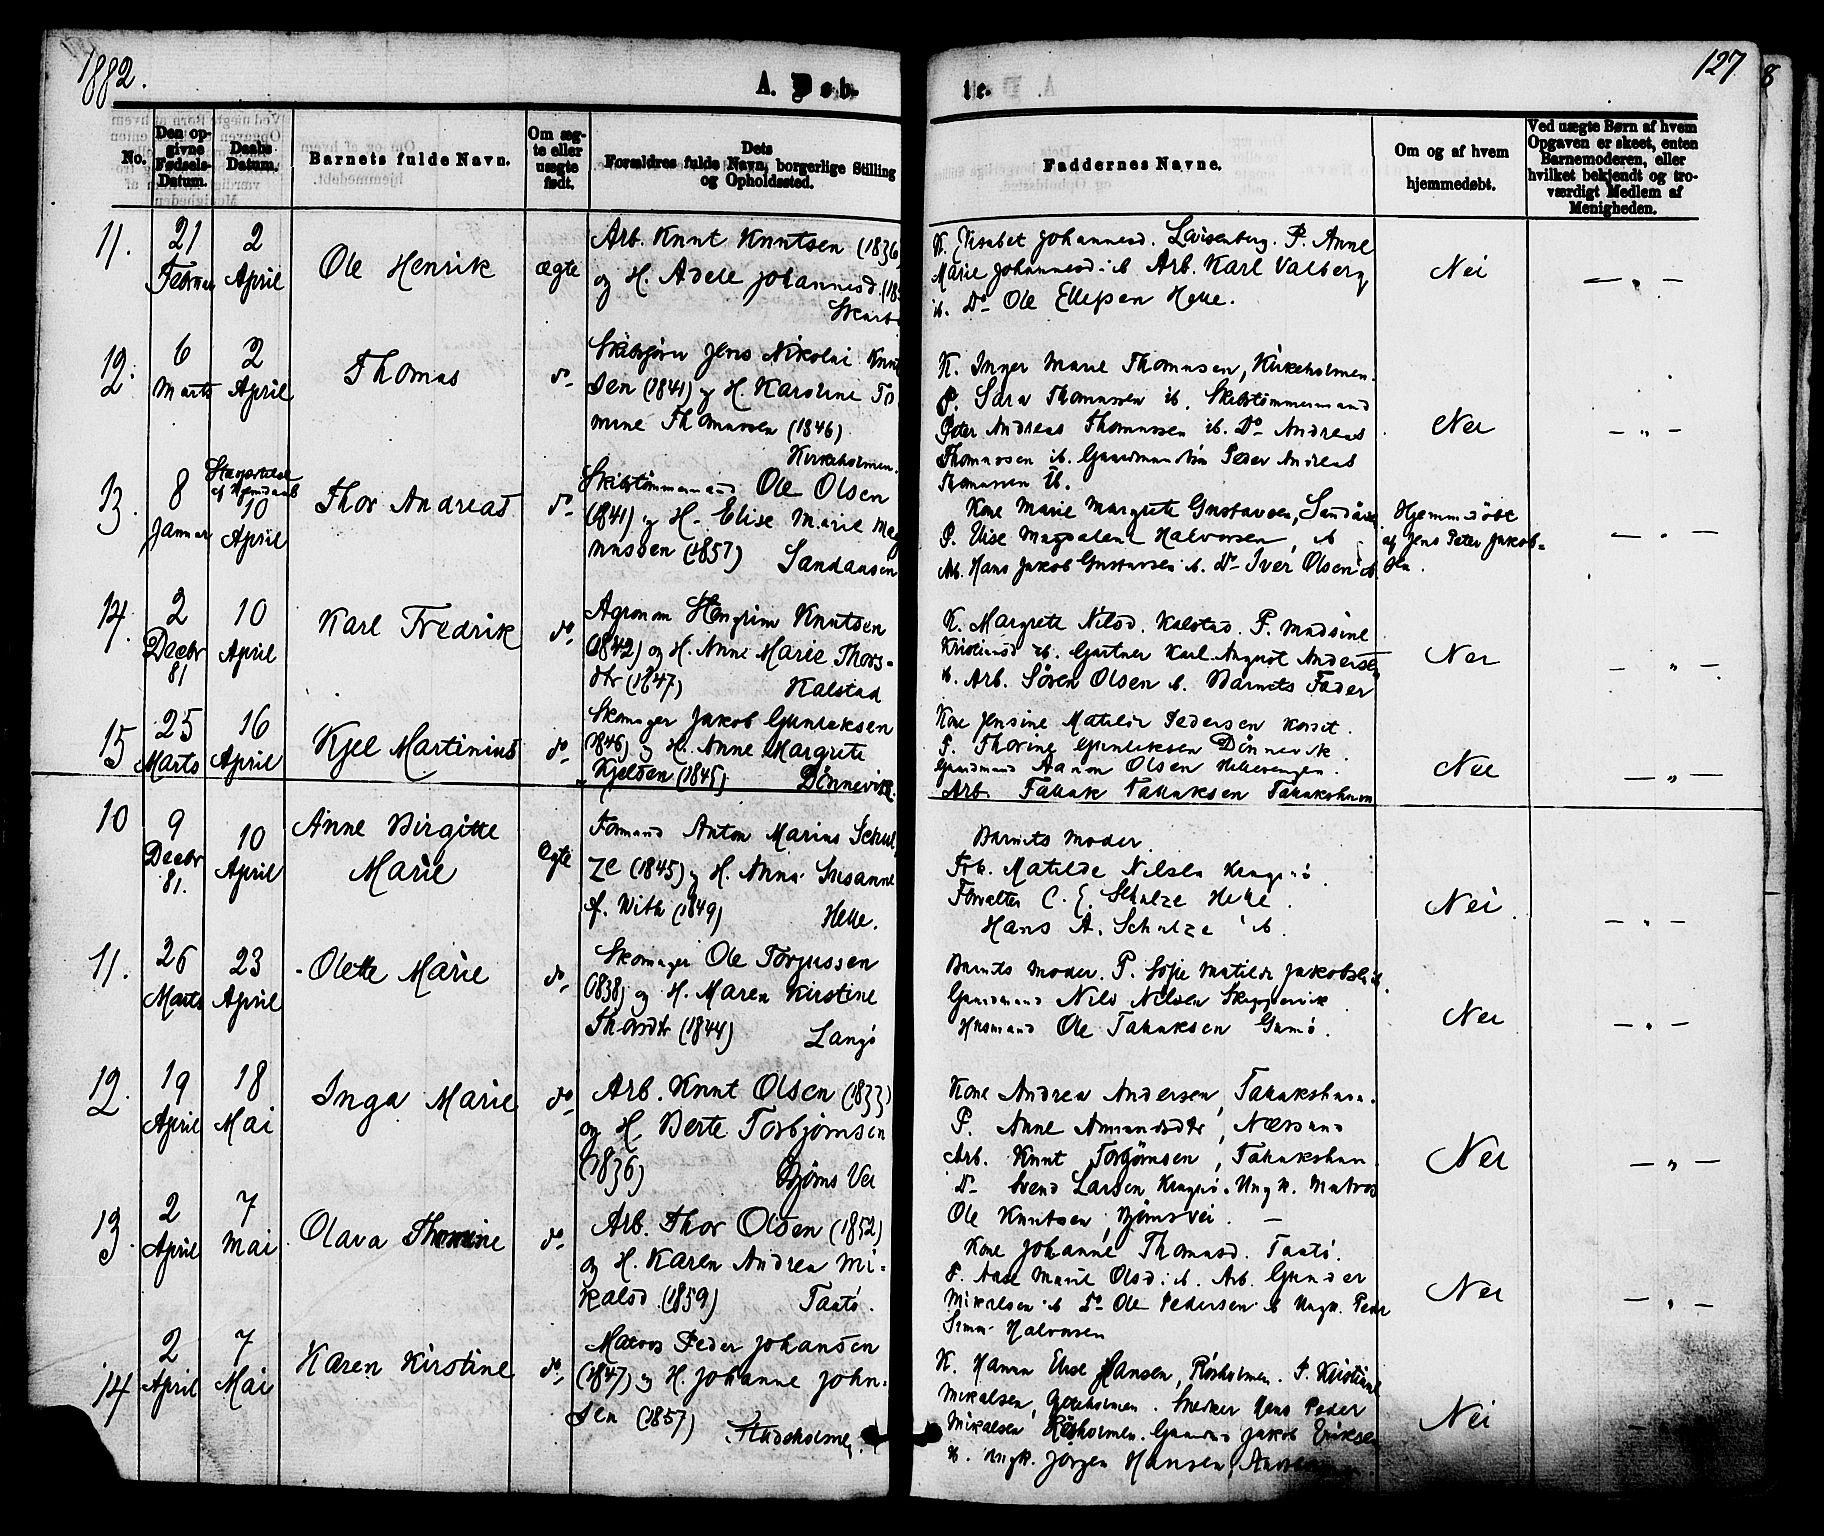 1882.
A. Døb-
te.
127
8
No.
Den op-
givne
Fødsels-
Datum.
Daabs
Datum.
Barnets fulde Navn.
Om æg-
te eller
uægte
født.
Dets
Forældres fulde Navn, borgerlige Stilling
og Opholdssted.
Faddernes Navne.
Om og af hvem
hjemmedøbt.
Ved uægte Børn af hvem
Opgaven er skeet, enten
Barnemoderen, eller
hvilket bekjendt og tro-
værdigt Medlem af
Menigheden.
11.
21
Februar
2
April
Ole Henrik
ægte
Arb. Knut Knutsen (1836)
og H. Adele Johannesd. (18
K. Elisabet Johannesd. Larsenberg. P. Anne
Marie Johannesd. ib. Arb. Karl Valberg
ib. Do Ole Ellefsen Helle.
Nei
— „ —
12.
6
Marts
2
April
Thomas
do
Skibsfører Jens Nikolai Knut
sen (1841) og H. Karoline To
mine Thomassen (1846)
Kirkeholmen.
K. Inger Marie Thomassen, Kirkeholmen.
P. Sara Thomassen ib. Skibstømmermand
Peter Andreas Thomassen ib. Do Andreas
Thomassen ib. Gaardmand Peder Andreas
Thomassen ib.
Nei
— „ —
13.
8
Januar
Stadfæstelse
af Hjemdaab
10
April
Thor Andreas
do
Skibstømmermand Ole Olsen
(1841) og H. Elise Marie Mag
nussen (1857) Sandaasen
Kone Marie Margrete Gustavsen, Sandaasen
P. Elise Magdalene Halvorsen, ib
Arb. Hans Jakob Gustavsen ib. Do Iver Olsen ib.
Hjemmedøbt
af Jens Peter Jakob-
sen.
— „ —
14.
2
Decbr
81
10
April
Karl Fredrik
do
Agronom Hengrim Knutsen
(1842) og H. Anne Marie Thors-
dtr (1847) Kalstad
K. Margrete Nilsd. Kalstad. P. Madsine
Kristensd ib. Gartner Karl August Andersen
ib. Arb. Søren Olsen ib. Barnets Fader
Nei
— „ —
15
25
Marts
16
April
Kjel Martinius
do
Skomager Jakob Gunleksen
(1846) og H. Anne Margrete
Kjelsen (1845) Dønnevik.
Kone Jensine Matilde Pedersen
P. Thorine Gunleksen Dønnevik
Gaardmand Aanon Olsen Hellevengen.
Arb. Tallak Tallaksen Tallakshavn
Nei
— „ —
10
9
Decbr
81.
10
April
Anne Birgitte
Marie
Ægte
Formand Anton Marius Schul
ze (1845) og H. Anna Susanne
f. With (1849) Helle.
Barnets Moder.
Frk. Matilde Nilsen Kragerø.
Forvalter C. E. Schulze Helle.
Hans A. Schulze ib.
Nei.
— „ —
11.
26
Marts
23
April
Olette Marie
do
Skomager Ole Torjussen
(1838) og H. Maren Kirstine
Thorsdtr (1844) Langø
Barnets Moder. P. Sofie Matilde Jakobsen ib.
Gaardmand Nils Nilsen
Husmand Ole Tallaksen Gumø.
Nei
— „ —
12.
19
April
18
Mai
Inga Marie
do
Arb. Knut Olsen (1833)
og H. Berte Torbjørnsen
(1836) Bjørns Vei
Kone Andrea Andersen, Tallakshavn.
P. Anne Amundsdtr, Næssund
Arb. Knut Torbjørnsen, Tallakshavn.
Do Svend Larsen, Kragerø. Ungk. Matros
Ole Knutsen, Bjørnsvei. —
Nei
— „ —
13.
2
April
7
Mai
Olava Thomine
do
Arb. Thor Olsen (1852)
og H. Karen Andrea Mi-
kalsd (1859) Taatø.
Kone Johanne Thomasd. Taatø.
P. Aase Marie Olsd. ib. Arb. Gunder
Mikalsen ib Do Ole Pedersen ib Ungk. Peder
Halvorsen
Nei
— „ —
14
2
April
7
Mai
Karen Kirstine
do,
Matros Peder Johansen
(1847) og H. Johanne John-
sen (1857)
K. Hanna Elise Hansen, Risholmen. P. Kristiane
Mikalsen, Snekker Hans Peder
Mikalsen Risholmen. Gaardmd Jakob Eriksen
ib. Ungk. Jørgen Hansen,
Nei